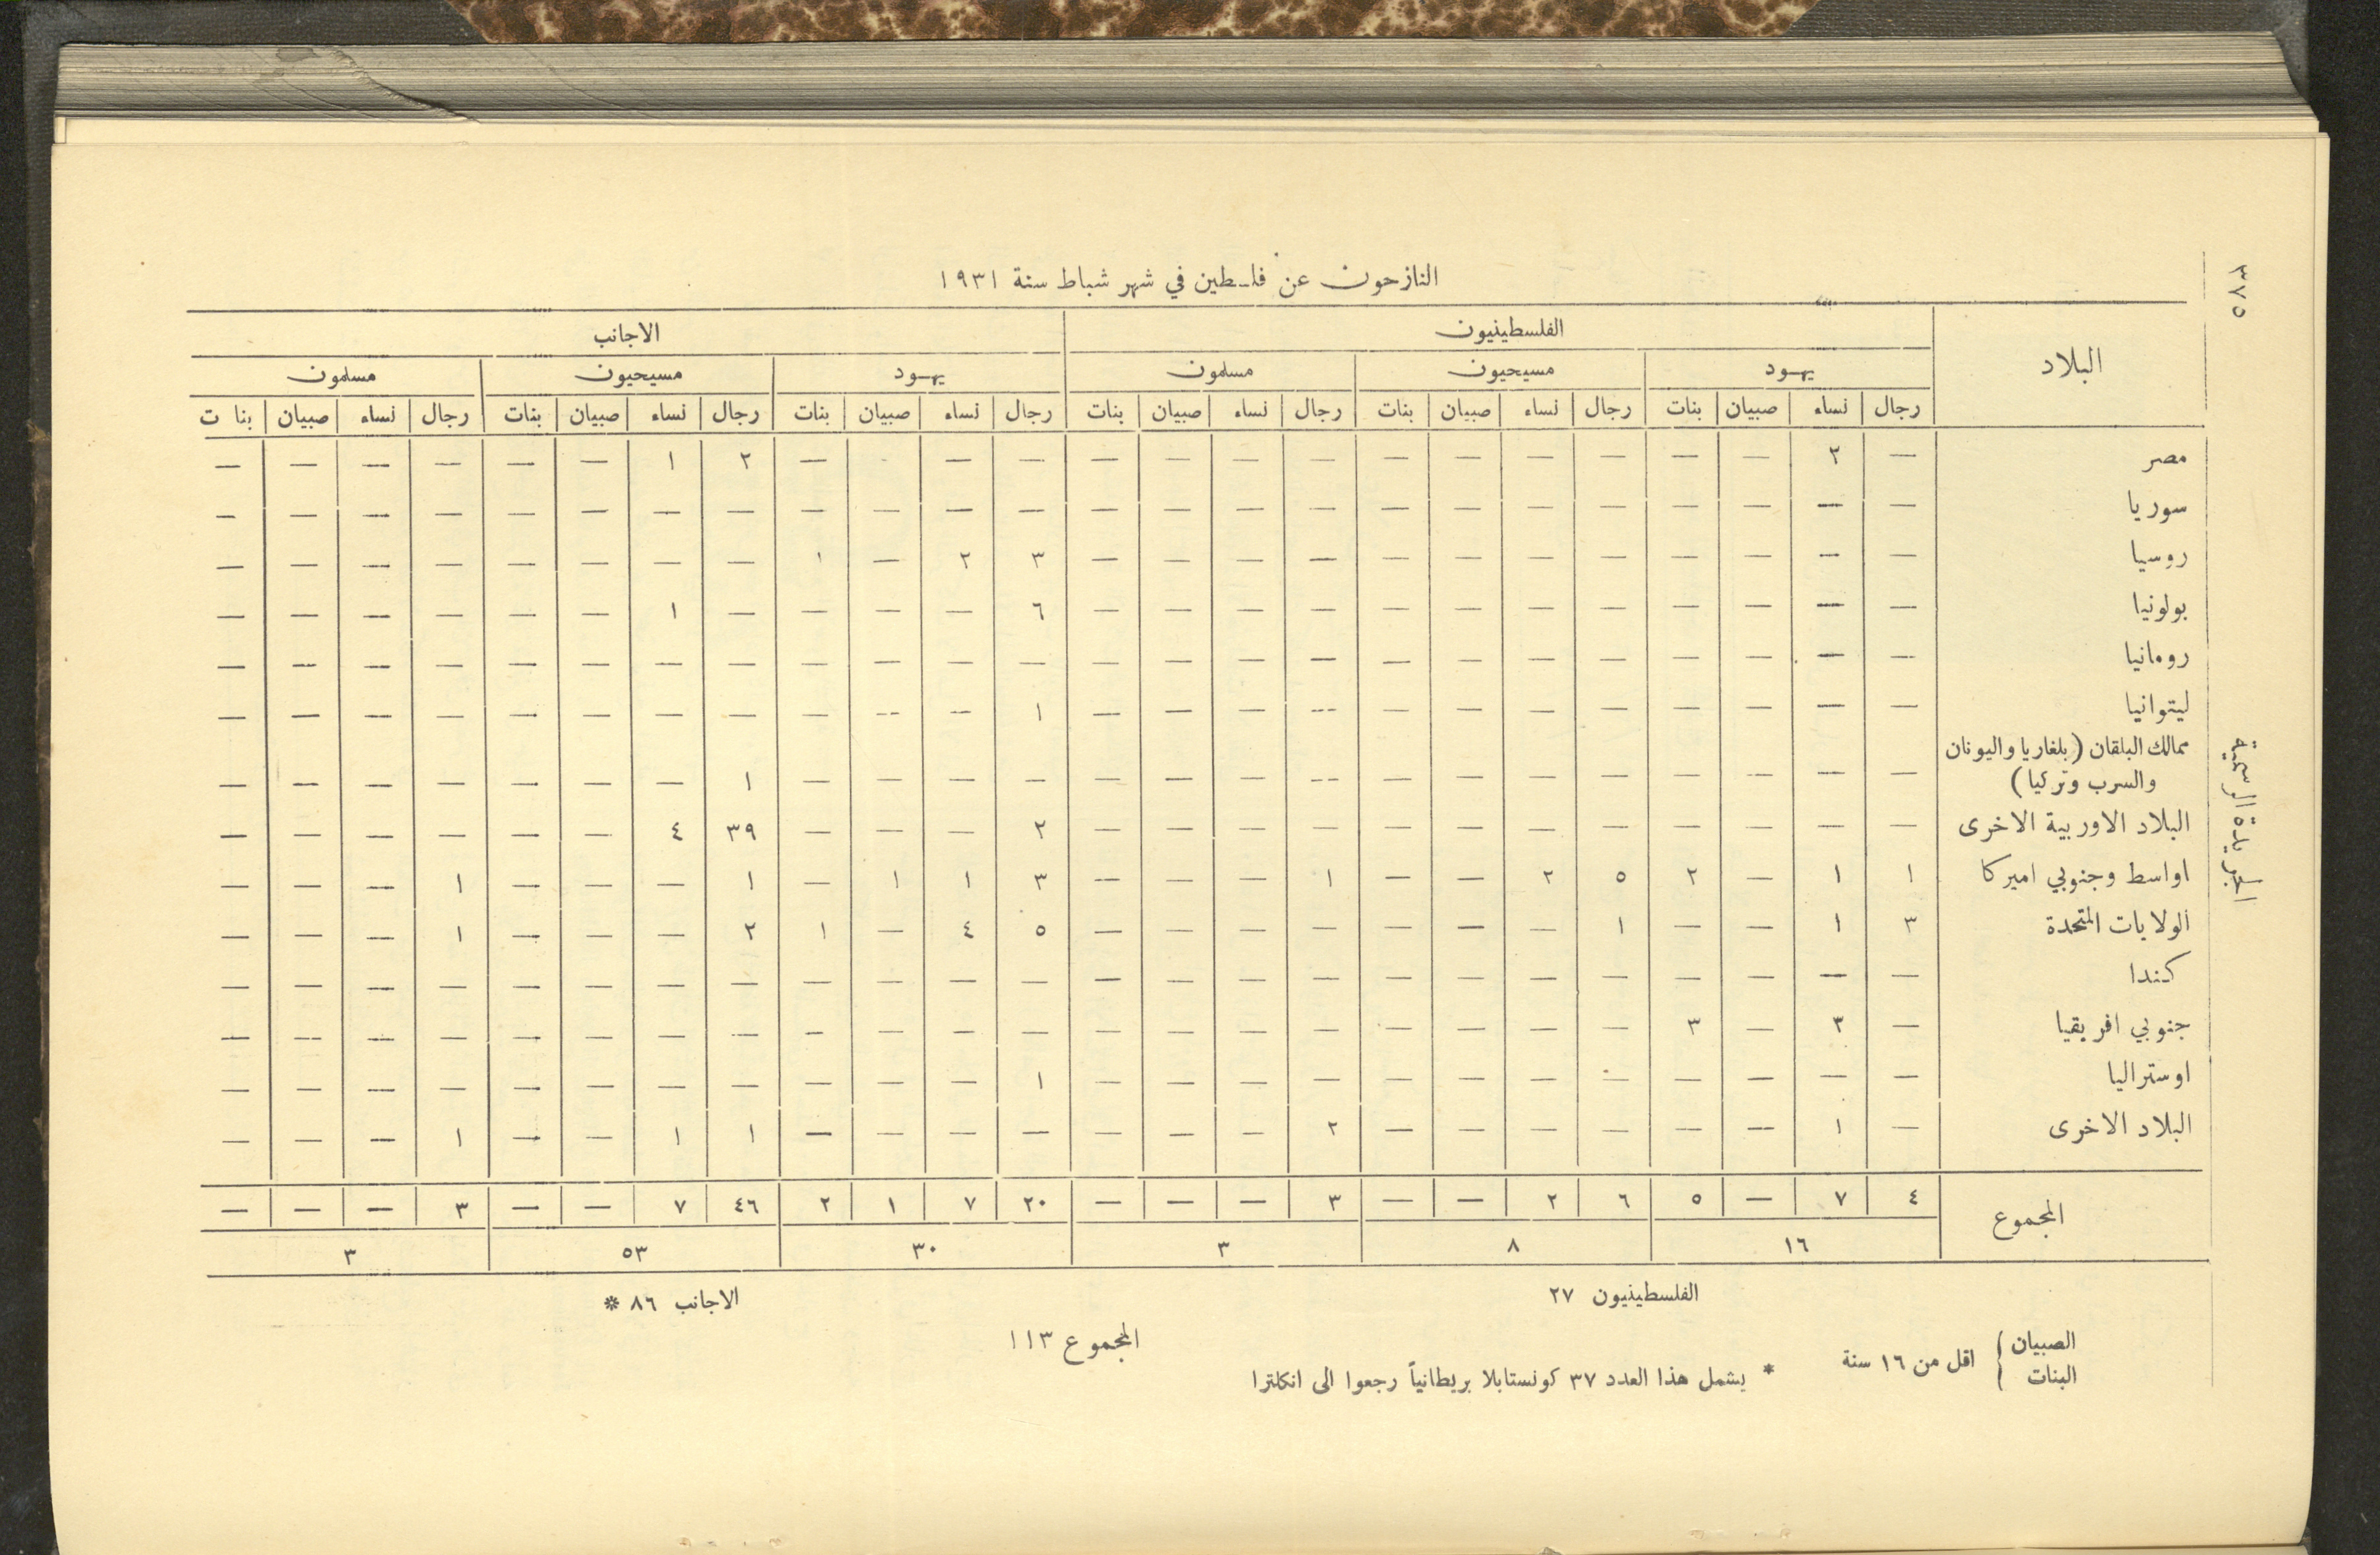 ٣٧٥
الجريدة الرسمية
النازحون عن فلسطين في شهر شباط سنة ١٩٣١
البلاد | الفلسطينيون | الاجانب
يهود | مسيحيون | مسلمون | يهود | مسيحيون | مسلمون
رجال | نساء | صبيان | بنات | رجال | نساء | صبيان | بنات | رجال | نساء | صبيان | بنات | رجال | نساء | صبيان | بنات | رجال | نساء | صبيان | بنات | رجال | نساء | صبيان | بنات
مصر | — | ٢ | — | — | — | — | — | — | — | — | — | — | — | — | | — | ٢ | ١ | — | — | — | — | — | —
سوريا | — | — | — | — | — | — | — | — | — | — | — | — | — | — | — | — | — | — | — | — | — | — | — | —
روسيا | — | — | — | — | — | — | — | — | — | — | — | — | ٣ | ٢ | — | ١ | — | — | — | — | — | — | — | —
بولونيا | — | — | — | — | — | — | — | — | — | — | — | — | ٦ | — | — | — | — | ١ | — | — | — | — | — | —
رومانيا | — | — | — | — | — | — | — | — | — | — | — | — | — | — | — | — | — | — | — | — | — | — | — | —
ليتوانيا | — | — | — | — | — | — | — | — | — | — | — | — | ١ | — | — | — | — | — | — | — | — | — | — | —
ممالك البلقان (بلغاريا واليونان
والسرب وتركيا) | — | — | — | — | — | — | — | — | — | — | — | — | — | — | — | — | ١ | — | — | — | — | — | — | —
البلاد الاوربية الاخرى | — | — | — | — | — | — | — | — | — | — | — | — | ٢ | — | — | — | ٣٩ | ٤ | — | — | — | — | — | —
اواسط وجنوبي اميركا | ١ | ١ | — | ٢ | ٥ | ٢ | — | — | ١ | — | — | — | ٣ | ١ | ١ | — | ١ | — | — | — | ١ | — | — | —
الولايات المتحدة | ٣ | ١ | — | — | ١ | — | — | — | — | — | — | — | ٥ | ٤ | — | ١ | ٢ | — | — | — | ١ | — | — | —
كندا | — | — | — | — | — | — | — | — | — | — | — | — | — | — | — | — | — | — | — | — | — | — | — | —
جنوبي افريقيا | — | ٢ | — | ٣ | — | — | — | — | — | — | — | — | — | — | — | — | — | — | — | — | — | — | — | —
اوستراليا | — | — | — | — | — | — | — | — | — | — | — | — | ١ | — | — | — | — | — | — | — | — | — | — | —
البلاد الاخرى | — | ١ | — | — | — | — | — | — | ٢ | — | — | — | — | — | — | — | ١ | ١ | — | — | ١ | — | — | —
المجموع | ٤ | ٧ | — | ٥ | ٦ | ٢ | — | — | ٣ | — | — | — | ٢٠ | ٧ | ١ | ٢ | ٤٦ | ٧ | — | — | ٣ | — | — | —
١٦ | ٨ | ٣ | ٣٠ | ٥٣ | ٣
الفلسطينيون ٢٧ الاجانب ٨٦ *
المجموع ١١٣
الصبيان
البنات } اقل من ١٦ سنة
* يشمل هذا العدد ٣٧ كونستابلا بريطانياً رجعوا الى انكلترا